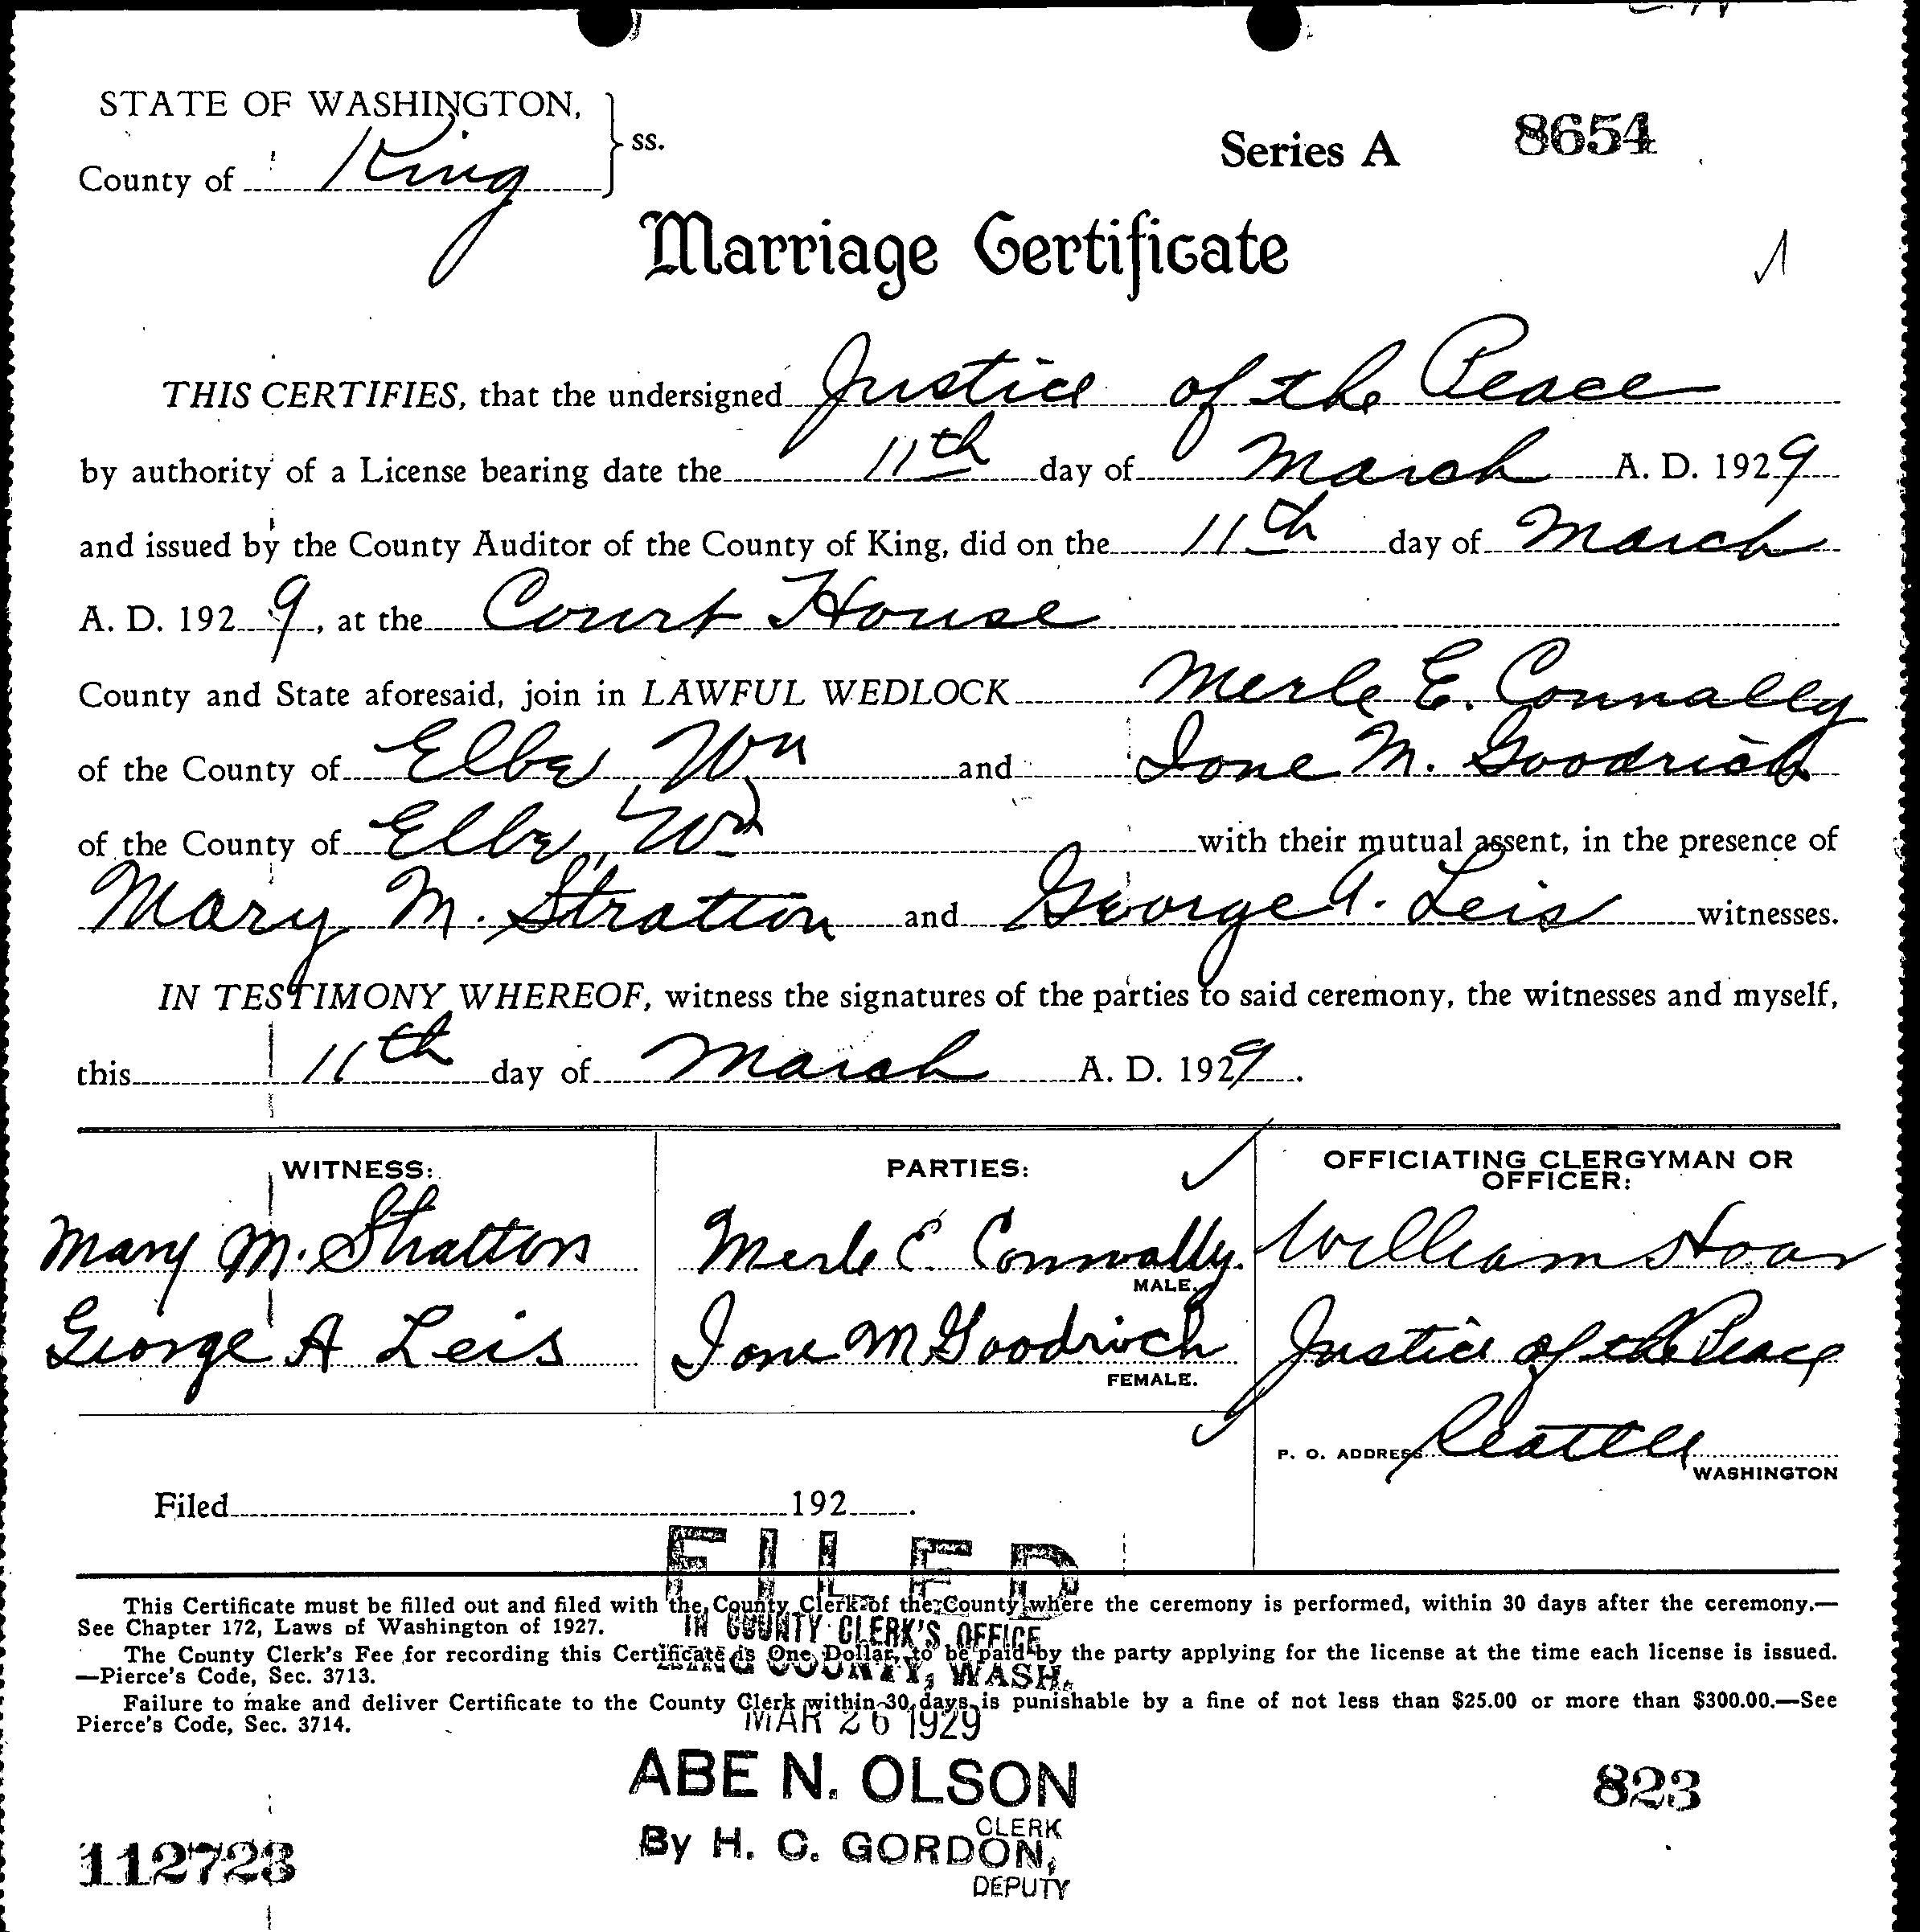 STATE OF WASHINGTON,
ss.
County of King
Series A 8654
Marriage Certificate
THIS CERTIFIES, that the undersigned Justice of the Peace
by authority of a License bearing date the 11th day of March A. D. 1929
and issued by the County Auditor of the County of King, did on the 11th day of March
A. D. 1929, at the Court House
County and State aforesaid, join in LAWFUL WEDLOCK Merle E. Connally
of the County of Elbe, Wn and Ione M. Goodrich
of the County of Elbe, Wn with their mutual assent, in the presence of
Mary M. Stratton and George A. Leis witnesses.
IN TESTIMONY WHEREOF, witness the signatures of the parties to said ceremony, the witnesses and myself,
this 11th day of March A. D. 1929.
WITNESS:
Mary M. Stratton
George A Leis
PARTIES:
Merle E Connally.
MALE.
Ione M Goodrich
FEMALE.
OFFICIATING CLERGYMAN OR
OFFICER:
William Hoar
Justice of the Peace
P. O. ADDRESS Seattle
WASHINGTON
Filed 192 .
FILED
This Certificate must be filled out and filed with the County Clerk of the County where the ceremony is performed, within 30 days after the ceremony.—
See Chapter 172, Laws of Washington of 1927.
IN COUNTY CLERK'S OFFICE
The County Clerk's Fee for recording this Certificate is One Dollar, to be paid by the party applying for the license at the time each license is issued.
—Pierce's Code, Sec. 3713.
KING COUNTY, WASH.
Failure to make and deliver Certificate to the County Clerk within 30 days is punishable by a fine of not less than $25.00 or more than $300.00.—See
Pierce's Code, Sec. 3714.
MAR 26 1929
ABE N. OLSON
CLERK
By H. C. GORDON,
DEPUTY
823
112723